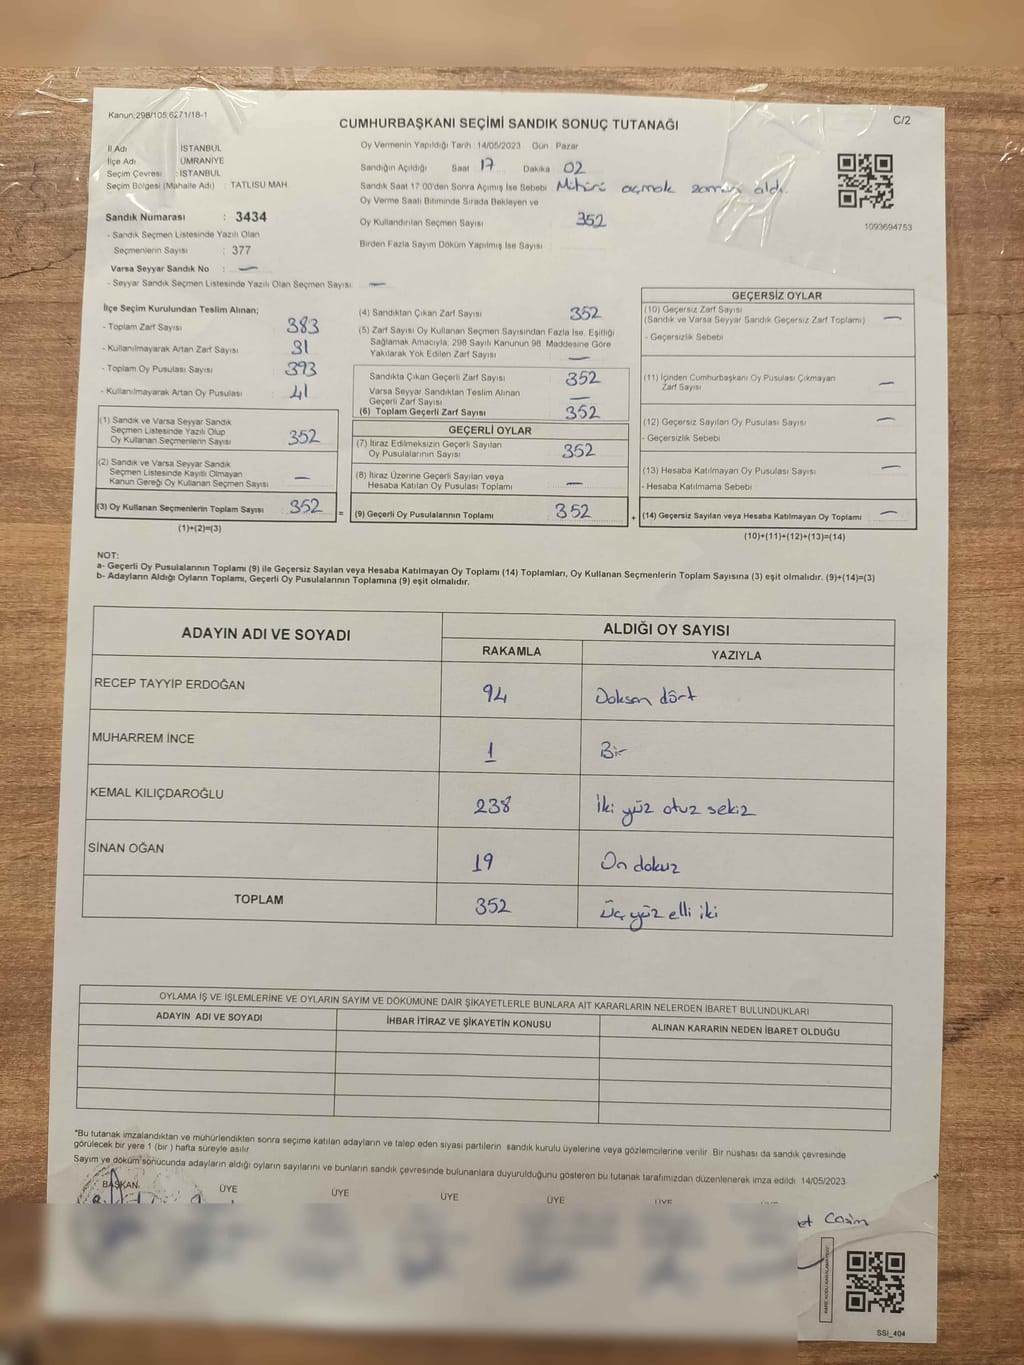 Kanun:298/105,6271/18-1
CUMHURBAŞKANI SEÇİMİ SANDIK SONUÇ TUTANAĞI
C/2
İl Adı : İSTANBUL
İlçe Adı : ÜMRANİYE
Seçim Çevresi : İSTANBUL
Seçim Bölgesi (Mahalle Adı) : TATLISU MAH.
Sandık Numarası : 3434
- Sandık Seçmen Listesinde Yazılı Olan
Seçmenlerin Sayısı : 377
Varsa Seyyar Sandık No : —
- Seyyar Sandık Seçmen Listesinde Yazılı Olan Seçmen Sayısı : —
Oy Vermenin Yapıldığı Tarih : 14/05/2023 Gün : Pazar
Sandığın Açıldığı Saat 17 Dakika 02
Sandık Saat 17.00'den Sonra Açımış İse Sebebi Mührü açmak zaman aldı.
Oy Verme Saati Bitiminde Sırada Bekleyen ve
Oy Kullandırılan Seçmen Sayısı 352
Birden Fazla Sayım Döküm Yapılmış İse Sayısı
1093694753
İlçe Seçim Kurulundan Teslim Alınan;
- Toplam Zarf Sayısı 383
- Kullanılmayarak Artan Zarf Sayısı 31
- Toplam Oy Pusulası Sayısı 393
- Kullanılmayarak Artan Oy Pusulası 41
(1) Sandık ve Varsa Seyyar Sandık
Seçmen Listesinde Yazılı Olup
Oy Kullanan Seçmenlerin Sayısı 352
(2) Sandık ve Varsa Seyyar Sandık
Seçmen Listesinde Kayıtlı Olmayan
Kanun Gereği Oy Kullanan Seçmen Sayısı —
(3) Oy Kullanan Seçmenlerin Toplam Sayısı 352
(1)+(2)=(3)
=
(4) Sandıktan Çıkan Zarf Sayısı 352
(5) Zarf Sayısı Oy Kullanan Seçmen Sayısından Fazla İse, Eşitliği
Sağlamak Amacıyla, 298 Sayılı Kanunun 98. Maddesine Göre
Yakılarak Yok Edilen Zarf Sayısı —
Sandıkta Çıkan Geçerli Zarf Sayısı 352
Varsa Seyyar Sandıktan Teslim Alınan
Geçerli Zarf Sayısı —
(6) Toplam Geçerli Zarf Sayısı 352
GEÇERLİ OYLAR
(7) İtiraz Edilmeksizin Geçerli Sayılan
Oy Pusulalarının Sayısı 352
(8) İtiraz Üzerine Geçerli Sayılan veya
Hesaba Katılan Oy Pusulası Toplamı —
(9) Geçerli Oy Pusulalarının Toplamı 352
+
GEÇERSİZ OYLAR
(10) Geçersiz Zarf Sayısı
(Sandık ve Varsa Seyyar Sandık Geçersiz Zarf Toplamı) —
- Geçersizlik Sebebi :
(11) İçinden Cumhurbaşkanı Oy Pusulası Çıkmayan
Zarf Sayısı —
(12) Geçersiz Sayılan Oy Pusulası Sayısı —
- Geçersizlik Sebebi :
(13) Hesaba Katılmayan Oy Pusulası Sayısı —
- Hesaba Katılmama Sebebi :
(14) Geçersiz Sayılan veya Hesaba Katılmayan Oy Toplamı —
(10)+(11)+(12)+(13)=(14)
NOT:
a- Geçerli Oy Pusulalarının Toplamı (9) ile Geçersiz Sayılan veya Hesaba Katılmayan Oy Toplamı (14) Toplamları, Oy Kullanan Seçmenlerin Toplam Sayısına (3) eşit olmalıdır. (9)+(14)=(3)
b- Adayların Aldığı Oyların Toplamı, Geçerli Oy Pusulalarının Toplamına (9) eşit olmalıdır.
ADAYIN ADI VE SOYADI
ALDIĞI OY SAYISI
RAKAMLA YAZIYLA
RECEP TAYYİP ERDOĞAN 94 Doksan dört
MUHARREM İNCE 1 Bir
KEMAL KILIÇDAROĞLU 238 İki yüz otuz sekiz
SİNAN OĞAN 19 On dokuz
TOPLAM 352 Üç yüz elli iki
OYLAMA İŞ VE İŞLEMLERİNE VE OYLARIN SAYIM VE DÖKÜMÜNE DAİR ŞİKAYETLERLE BUNLARA AİT KARARLARIN NELERDEN İBARET BULUNDUKLARI
ADAYIN ADI VE SOYADI İHBAR İTİRAZ VE ŞİKAYETİN KONUSU ALINAN KARARIN NEDEN İBARET OLDUĞU
*Bu tutanak imzalandıktan ve mühürlendikten sonra seçime katılan adayların ve talep eden siyasi partilerin sandık kurulu üyelerine veya gözlemcilerine verilir. Bir nüshası da sandık çevresinde
görülecek bir yere 1 (bir ) hafta süreyle asılır.
Sayım ve döküm sonucunda adayların aldığı oyların sayılarını ve bunların sandık çevresinde bulunanlara duyurulduğunu gösteren bu tutanak tarafımızdan düzenlenerek imza edildi. 14/05/2023
BAŞKAN ÜYE ÜYE ÜYE ÜYE ÜYE
SSI_404